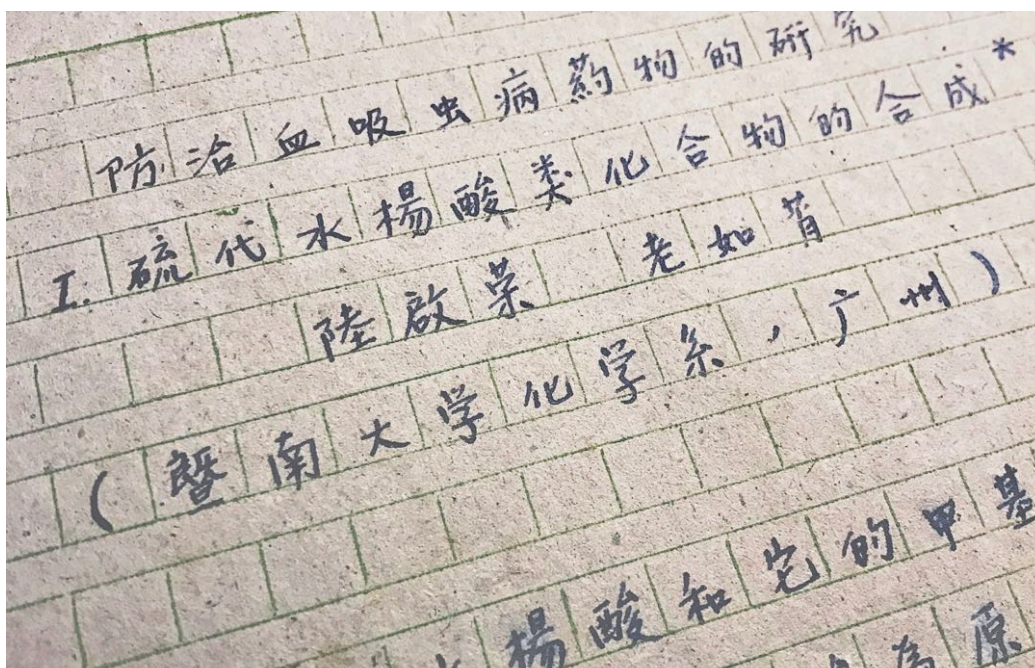 防治血吸虫病药物的研究
I. 硫代水楊酸类化合物的合成*
陸啟荣 老如菁
(暨南大学化学系,广州)
楊酸和它的甲基
原